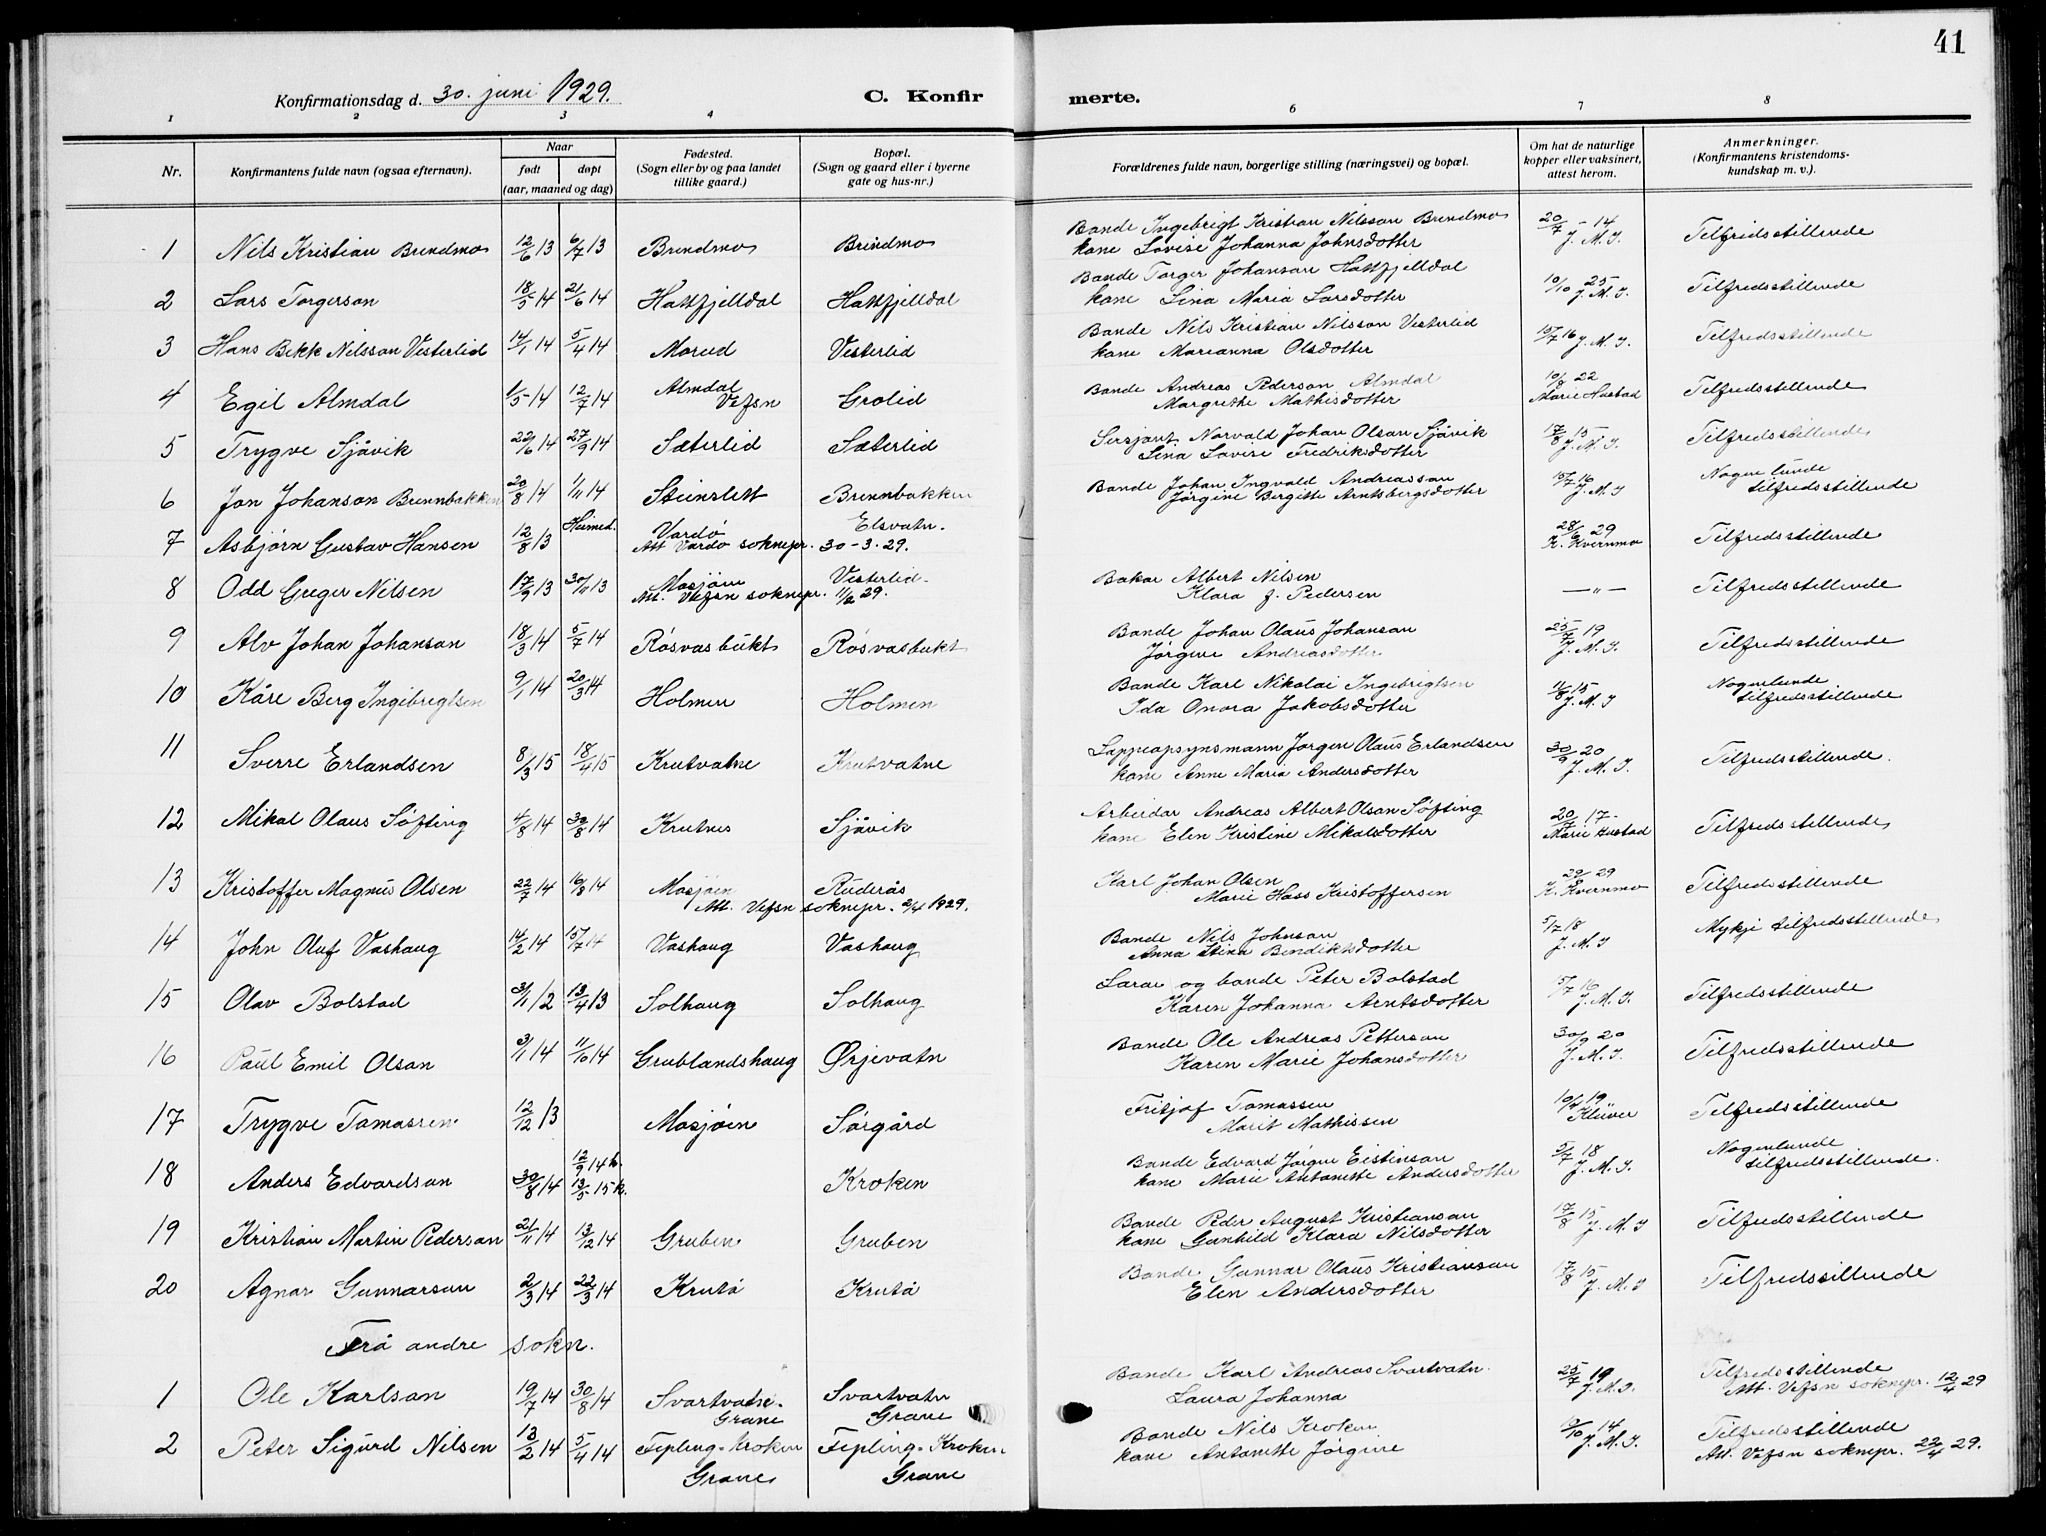 41
Konfirmationsdag d. 30. juni 1929.
C. Konfirmerte.
1 2 3 4 6 7 8
Nr.
Konfirmantens fulde navn (ogsaa efternavn).
Naar
født døpt
(aar, maaned og dag)
Fødested.
(Sogn eller by og paa landet
tillike gaard.)
Bopæl.
(Sogn og gaard eller i byerne
gate og hus-nr.)
Forældrenes fulde navn, borgerlige stilling (næringsvei) og bopæl.
Om hat de naturlige
kopper eller vaksinert,
attest herom.
Anmerkninger.
(Konfirmantens kristendoms-
kundskap m. v.).
1 Nils Kristian Brendmo 12/6 13 6/7 13 Brendmo Brendmo Bonde Ingebrigt Kristian Nilsson Brendmo 20/7 - 14 Tilfredsstillende
kone Lovise Johanna Johnsdotter J. M. I.
2 Lars Torgerson 18/5 14 21/6 14 Hattfjelldal Hattfjelldal Bonde Torger Johanson Hattfjelldal 10/10 25 Tilfredsstillende
kone Lina Maria Larsdotter J. M. I.
3 Hans Bekk Nilsson Vesterlid 14/1 14 5/4 14 Morud Vesterlid Bonde Nils Kristian Nilsson Vesterlid 15/7 16 J. M. I. Tilfredsstillende
kone Marianna Olsdotter
4 Egil Almdal 1/5 14 12/7 14 Almdal Vefsn Grolid Bonde Andreas Pederson Almdal 10/8 22 Tilfredsstillende
Margrethe Mathisdotter Marie Hustad
5 Trygve Sjåvik 22/6 14 27/9 14 Sæterlid Sæterlid Sersjant Norvald Johan Olson Sjåvik 17/8 15 Tilfredsstillende
Lina Lovise Fredriksdotter J. M. I.
6 Jon Johanson Brennbakken 20/8 14 1/11 14 Steinslett Brennbakken Bonde Johan Ingvald Andreasson 15/7 16 Nogenlunde
Jørgine Bergitte Arntsbergsdotter J. M. I tilfredsstillende
7 Asbjørn Gustav Hansen 12/8 13 Heimed. Vardø Elsvatn. 29 Tilfredsstillende
Att. Vardø soknepr. 30-3-29. K. Kvernmo
8 Odd Greger Nilsen 17/9 13 30/11 13 Mosjøen Vesterlid Bakar Albert Nilsen — " — Tilfredsstillende
Att. Vefsn soknepr. 11/2 29. Klara J. Pedersen
9 Alv Johan Johanson 18/3 14 5/7 14 Røsvasbukt Røsvasbukt Bonde Johan Olaus Johanson 25/7 19 Tilfredsstillende
Jørgine Andreasdotter J. M. I.
10 Kåre Berg Ingebrigtsen 9/1 14 20/3 14 Holmen Holmen Bonde Karl Nikolai Ingebrigtsen 15 Nogenlunde
Ida Onora Jakobsdotter J. M. I tilfredsstillende
11 Sverre Erlandsen 8/3 15 18/4 15 Krutvatne Krutvatne Lappeopsynsmann Jørgen Olaus Erlandsen 30/9 20 Tilfredsstillende.
kone Anne Maria Andersdotter J. M. I.
12 Mikal Olaus Søfting 4/8 14 30/8 14 Krutnes Sjåvik Arbeidar Andreas Albert Olson Søfting 20/7 17 Tilfredsstillende
kone Elen Kristine Mikalsdotter Marie Hustad
13 Kristoffer Magnus Olsen 22/7 14 16/8 14 Mosjøen Ruderås Karl Johan Olsen 29 Tilfredsstillende
Att. Vefsn soknepr. 2/4 1929. Marie Hass Kristoffersen K. Kvernmo
14 John Oluf Vashaug 14/2 14 15/7 14 Vashaug Vashaug Bonde Nils Johnson 5/7 18 Mykje tilfredsstillende
Anna Stina Bendiktsdotter J. M. I
15 Olav Bolstad 3/1 12 13/4 13 Solhaug Solhaug Lærar og bonde Peter Bolstad 15/7 16 Tilfredsstillende
Karen Johanna Arntsdotter J. M. I.
16 Paul Emil Olson 3/1 14 11/10 14 Grublandshaug Ørjevatn Bonde Ole Andreas Petterson 30/9 20 Tilfredsstillende
Karen Marie Johansdotter J. M. I.
17 Trygve Tomassen 12/12 13 Mosjøen Sørgård Fritjof Tomassen 19 Tilfredsstillende
Marit Mathissen Klüver
18 Anders Edvardson 30/8 14 12/9 14 h. Kroken Bonde Edvard Jørgen Eistinson 5/7 18 Nogenlunde
13/5 15 k. kone Marie Antonette Andersdotter J. M. I. tilfredsstillende.
19 Kristian Martin Pederson 21/11 14 13/12 14 Gruben Gruben Bonde Peder August Kristianson 17/8 15 Tilfredsstillende
kone Gunhild Klara Nilsdotter J. M. I
20 Agnar Gunnarson 2/3 14 22/3 14 Krutå Krutå Bonde Gunnar Olaus Kristianson 17/8 15 Tilfredssillende
Elen Andersdotter J. M. I
Frå andre sokn.
1 Ole Karlson 19/7 14 30/8 14 Svartvatne Svartvatn Bonde Karl Andreas Svartvatn 25/7 19 Tilfredsstillende
Grane Grane Laura Johanna J. M. I. Att. Vefsn soknepr. 12/4 29
2 Peter Sigurd Nilsen 13/2 14 5/4 14 Fipling-Kroken Fipling-Kroken Bonde Nils Kroken 14 Tilfredsstillende
Grane Grane kone Antonette Jørgine J. M. I. Att. Vefsn soknepr. 22/4 29.